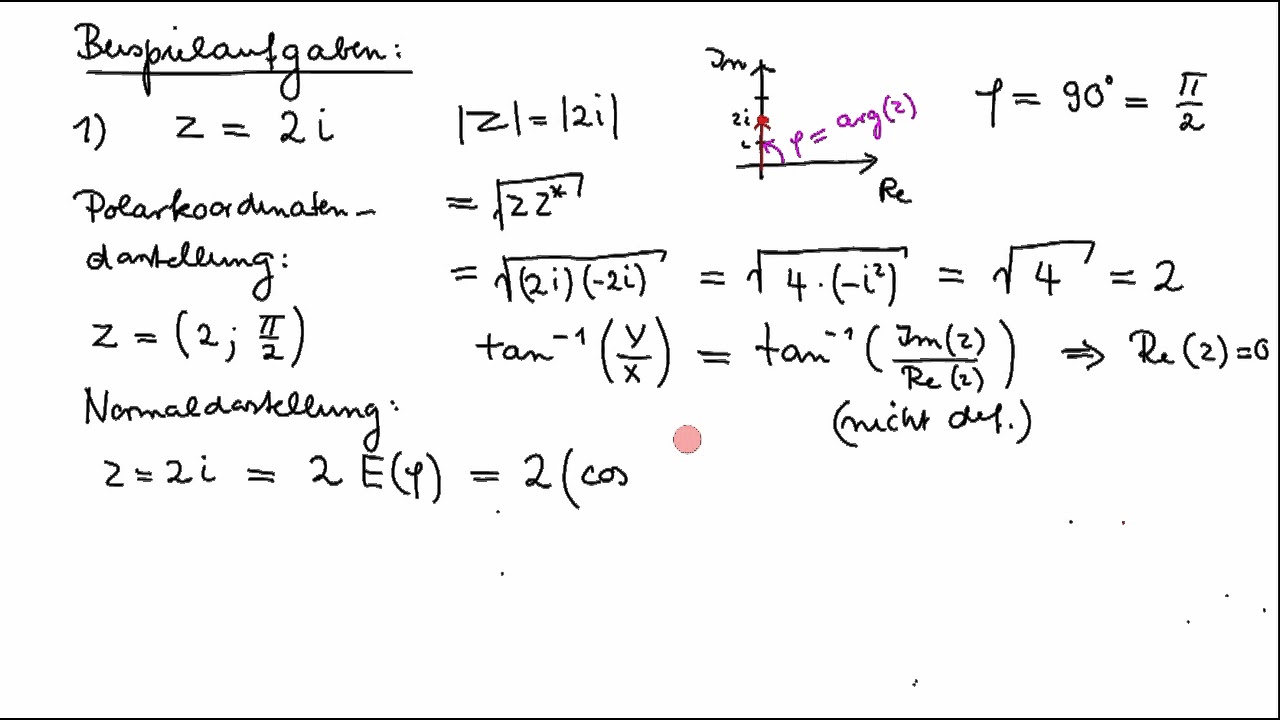 Beispielaufgaben:
1) z = 2i
|z| = |2i|
= √(zz*)
= √((2i)(-2i)) = √(4·(-i²)) = √4 = 2
Im
2i
i
φ = arg(z)
Re
φ = 90° = π/2
Polarkoordinaten-
darstellung:
z = (2; π/2)
tan⁻¹(y/x) = tan⁻¹(Im(z)/Re(z)) ⇒ Re(z)=0
(nicht def.)
Normaldarstellung:
z = 2i = 2 E(φ) = 2(cos